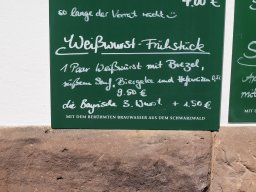 7.00 €
so lange der Vorrat reicht ☺
Weißwurst-Frühstück
1 Paar Weißwürst mit Brezel,
süßem Senf, Biergelee und Hefeweizen 0,5l
9.50 €
die Bayrische 3. Wurst + 1.50 €
MIT DEM BERÜHMTEN BRAUWASSER AUS DEM SCHWARZWALD
MIT DEM BE